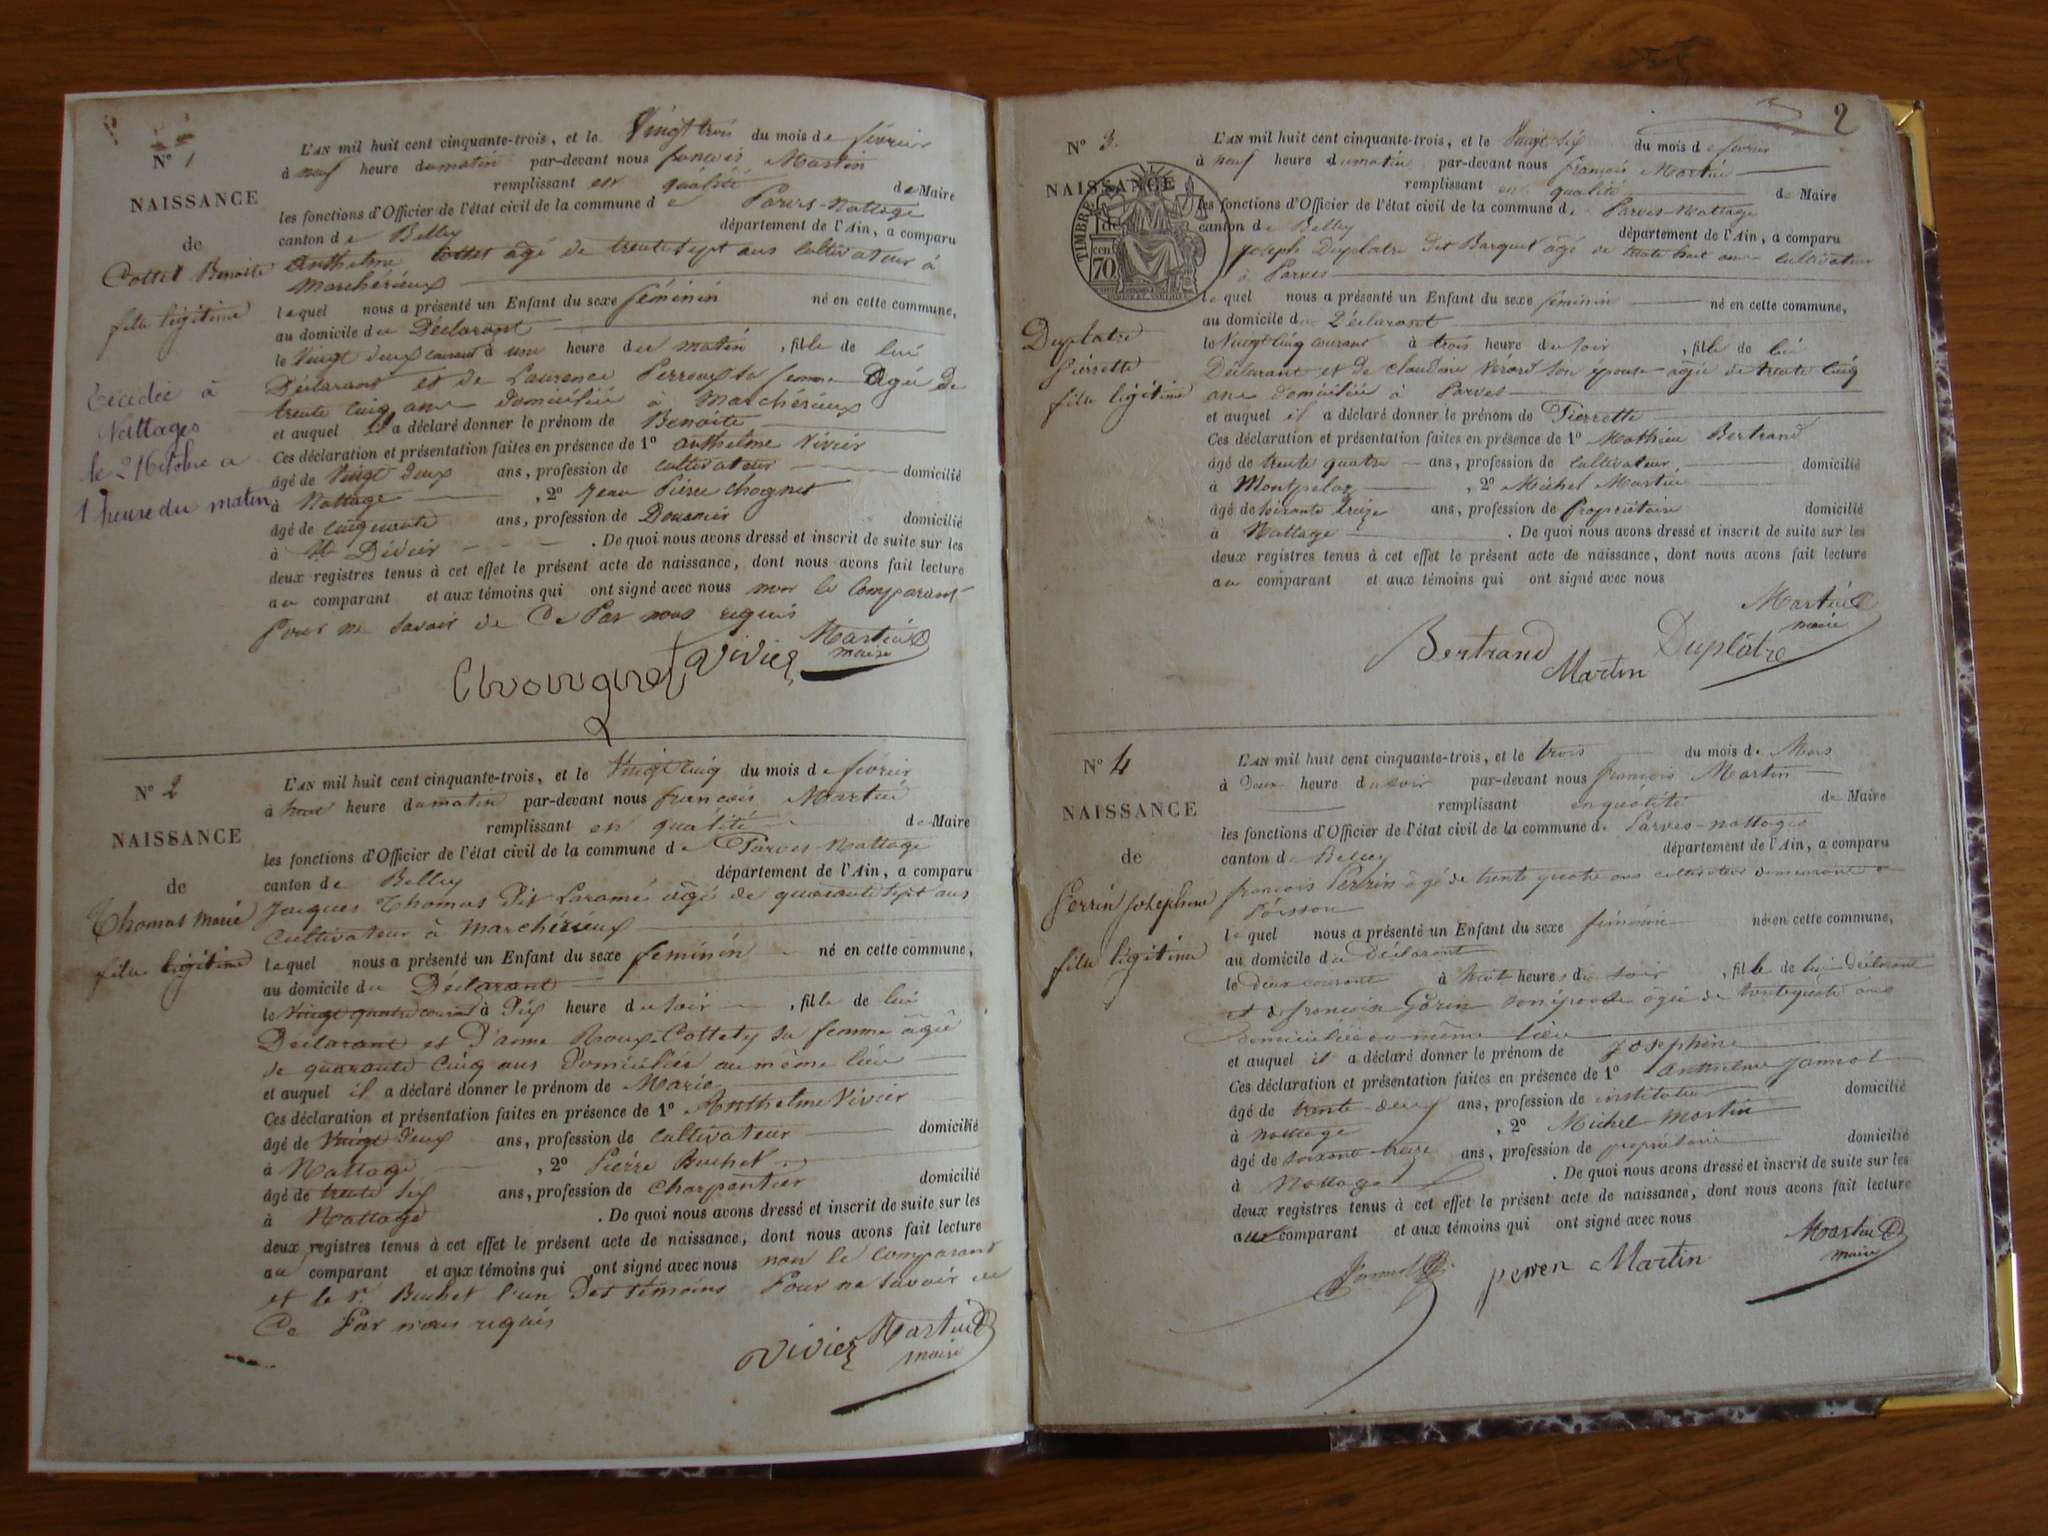 N° 1
NAISSANCE
de
Cottet Benoite
fille légitime
Décédée à
Nattages
le 2 octobre a
1 heure du matin
L'AN mil huit cent cinquante-trois, et le Vingt trois du mois de février
à neuf heure du matin par-devant nous françois Martin
remplissant en qualité de Maire
les fonctions d'Officier de l'état civil de la commune de Parves-Nattage
canton de Belley département de l'Ain, a comparu
Anthelme Cottet âgé de trente sept ans Cultivateur à
Marchérieux
lequel nous a présenté un Enfant du sexe féminin né en cette commune,
au domicile du Déclarant
le Vingt deux courant à une heure du matin, fille de lui
Déclarant et de Laurence Perroux sa femme Agée de
trente cinq ans domiciliée à Marchérieux
et auquel il a déclaré donner le prénom de Benoite
Ces déclaration et présentation faites en présence de 1° anthelme Vivier
âgé de Vingt deux ans, profession de cultivateur domicilié
à Nattage, 2° Jean Pierre Chognet
âgé de cinquante ans, profession de Douanier domicilié
à St Didier. De quoi nous avons dressé et inscrit de suite sur les
deux registres tenus à cet effet le présent acte de naissance, dont nous avons fait lecture
au comparant et aux témoins qui ont signé avec nous non le comparant
Pour ne savoir de Ce Par nous requis
Martin
maire
Vivier
N° 2
NAISSANCE
de
Thomas Marie
fille légitime
L'AN mil huit cent cinquante-trois, et le Vingt cinq du mois de février
à heure du matin par-devant nous françois Martin
remplissant en qualité de Maire
les fonctions d'Officier de l'état civil de la commune de Parves-Nattage
canton de Belley département de l'Ain, a comparu
Jacques Thomas Dit Laramé âgé de quarante sept ans
Cultivateur à Marchérieux
lequel nous a présenté un Enfant du sexe féminin né en cette commune,
au domicile du Déclarant
le Vingt quatre courant à Dix heure du soir, fille de lui
Déclarant et D'anne Roux-Cottety sa femme âgée
de quarante Cinq ans Domiciliée au même lieu
et auquel il a déclaré donner le prénom de Marie
Ces déclaration et présentation faites en présence de 1° Anthelme Vivier
âgé de Vingt deux ans, profession de Cultivateur domicilié
à Nattage, 2° Pierre Buchet
âgé de trente six ans, profession de Charpentier domicilié
à Nattage. De quoi nous avons dressé et inscrit de suite sur les
deux registres tenus à cet effet le présent acte de naissance, dont nous avons fait lecture
au comparant et aux témoins qui ont signé avec nous non le comparant
et le Sr Buchet l'un Des témoins Pour ne savoir de
Ce Par nous requis
Vivier Martin
maire
2
N° 3
NAISSANCE
de
TIMBRE
70
Duplatre
Pierrette
fille légitime
L'AN mil huit cent cinquante-trois, et le Vingt six du mois de février
à neuf heure du matin par-devant nous françois Martin
remplissant en qualité de Maire
les fonctions d'Officier de l'état civil de la commune de Parves-Nattage
canton de Belley département de l'Ain, a comparu
Joseph Duplatre dit Barquet âgé de trente huit ans cultivateur
à Parves
lequel nous a présenté un Enfant du sexe féminin né en cette commune,
au domicile du Déclarant
le Vingt cinq courant à trois heure du soir, fille de lui
Déclarant et de Claudine Vérard son épouse agée de trente cinq
ans domiciliée à Parves
et auquel il a déclaré donner le prénom de Pierrette
Ces déclaration et présentation faites en présence de 1° Mathieu Bertrand
âgé de trente quatre ans, profession de Cultivateur domicilié
à Montpelaz, 2° Michel Martin
âgé de soixante treize ans, profession de Propriétaire domicilié
à Nattage. De quoi nous avons dressé et inscrit de suite sur les
deux registres tenus à cet effet le présent acte de naissance, dont nous avons fait lecture
au comparant et aux témoins qui ont signé avec nous
Martin
maire
Bertrand Martin Duplâtre
N° 4
NAISSANCE
de
Perrin Josephine
fille légitime
L'AN mil huit cent cinquante-trois, et le trois du mois de Mars
à Deux heure du soir par-devant nous françois Martin
remplissant en qualité de Maire
les fonctions d'Officier de l'état civil de la commune de Parves-nattages
canton de Belley département de l'Ain, a comparu
françois Perrin âgé de trente quatre ans cultivateur demeurant à
Poisson
lequel nous a présenté un Enfant du sexe féminin né en cette commune,
au domicile du Déclarant
le deux courant à huit heures du soir, fille de lui Déclarant
et de françoise Gorin son épouse âgée de trente quatre ans
Domiciliée au même lieu
et auquel il a déclaré donner le prénom de Josephine
Ces déclaration et présentation faites en présence de 1° anthelme Jannot
âgé de trente-deux ans, profession de instituteur domicilié
à nattage, 2° Michel Martin
âgé de soixante-treize ans, profession de propriétaire domicilié
à Nattage. De quoi nous avons dressé et inscrit de suite sur les
deux registres tenus à cet effet le présent acte de naissance, dont nous avons fait lecture
aux comparant et aux témoins qui ont signé avec nous
Martin
maire
perren Martin